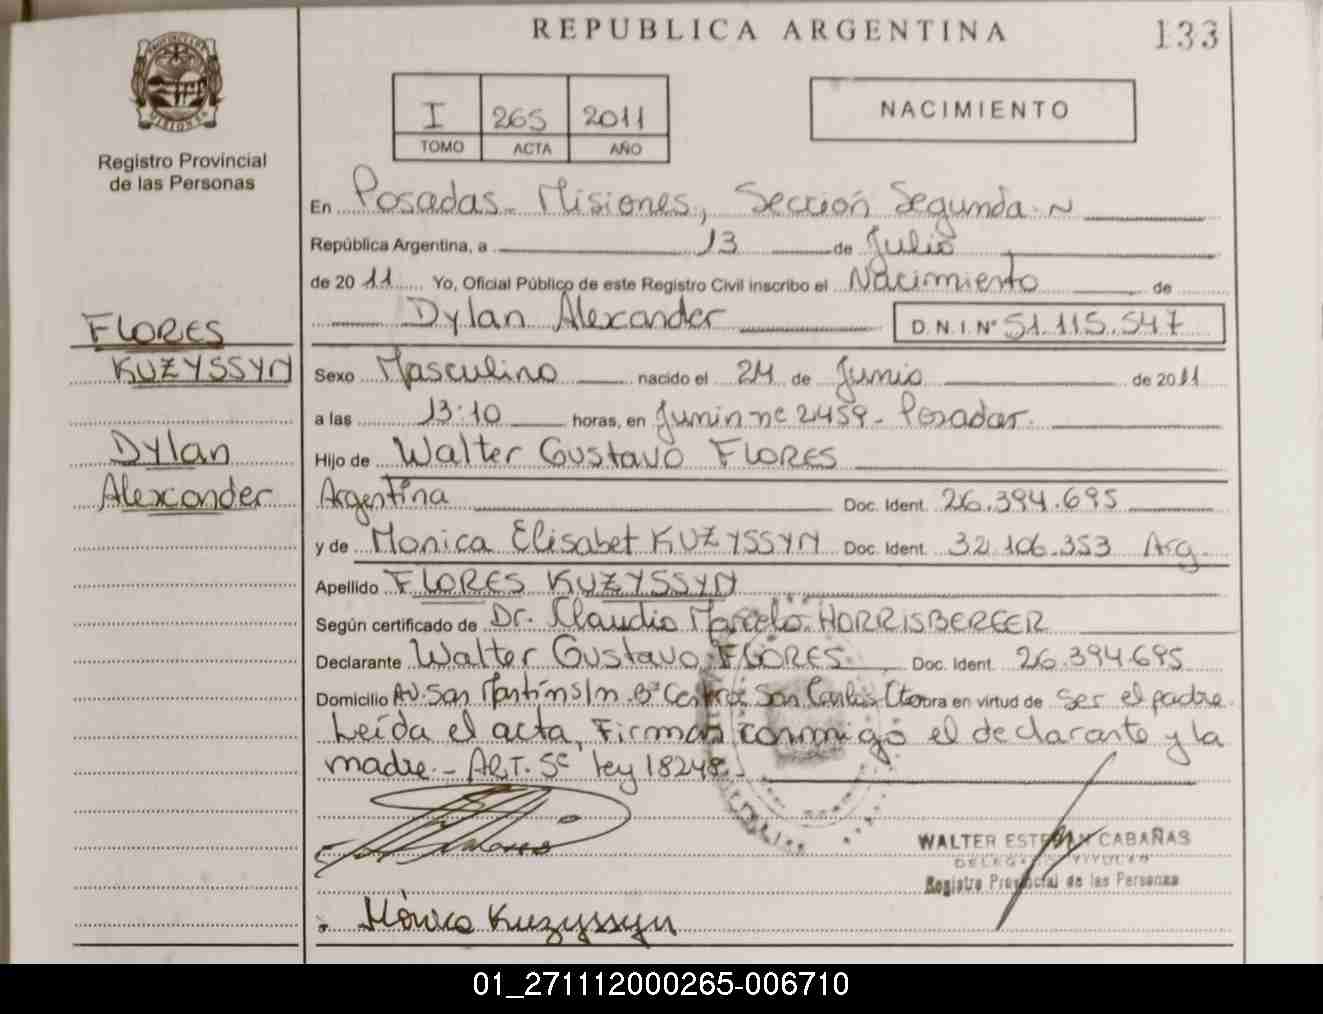 REPUBLICA ARGENTINA
133
MISIONES
Registro Provincial
de las Personas
I 265 2011
TOMO ACTA AÑO
NACIMIENTO
En Posadas - Misiones, Sección Segunda
República Argentina, a 13 de Julio
de 2011 Yo, Oficial Público de este Registro Civil inscribo el Nacimiento de
Dylan Alexander D.N.I. Nº 51.115.547
FLORES
KUZYSSYN
Dylan
Alexander
Sexo Masculino nacido el 24 de Junio de 2011
a las 13:10 horas, en Junin nº 2459 - Posadas.
Hijo de Walter Gustavo FLORES
Argentina Doc. Ident. 26.394.695
y de Monica Elisabet KUZYSSYN Doc. Ident. 32.106.353 Arg.
Apellido FLORES KUZYSSYN
Según certificado de Dr. Claudio Marcelo HORRISBERGER
Declarante Walter Gustavo FLORES Doc. Ident. 26.394.695
Domicilio AV. San Martín S/n. Bº Centro San Carlos Ctes obra en virtud de ser el padre
Leída el acta, Firman conmigo el declarante y la
madre - ART. 5º ley 18248 -
WALTER ESTEBAN CABAÑAS
DELEGADO TITULAR
Registro Provincial de las Personas
Mónica Kuzyssyn
01_271112000265-006710